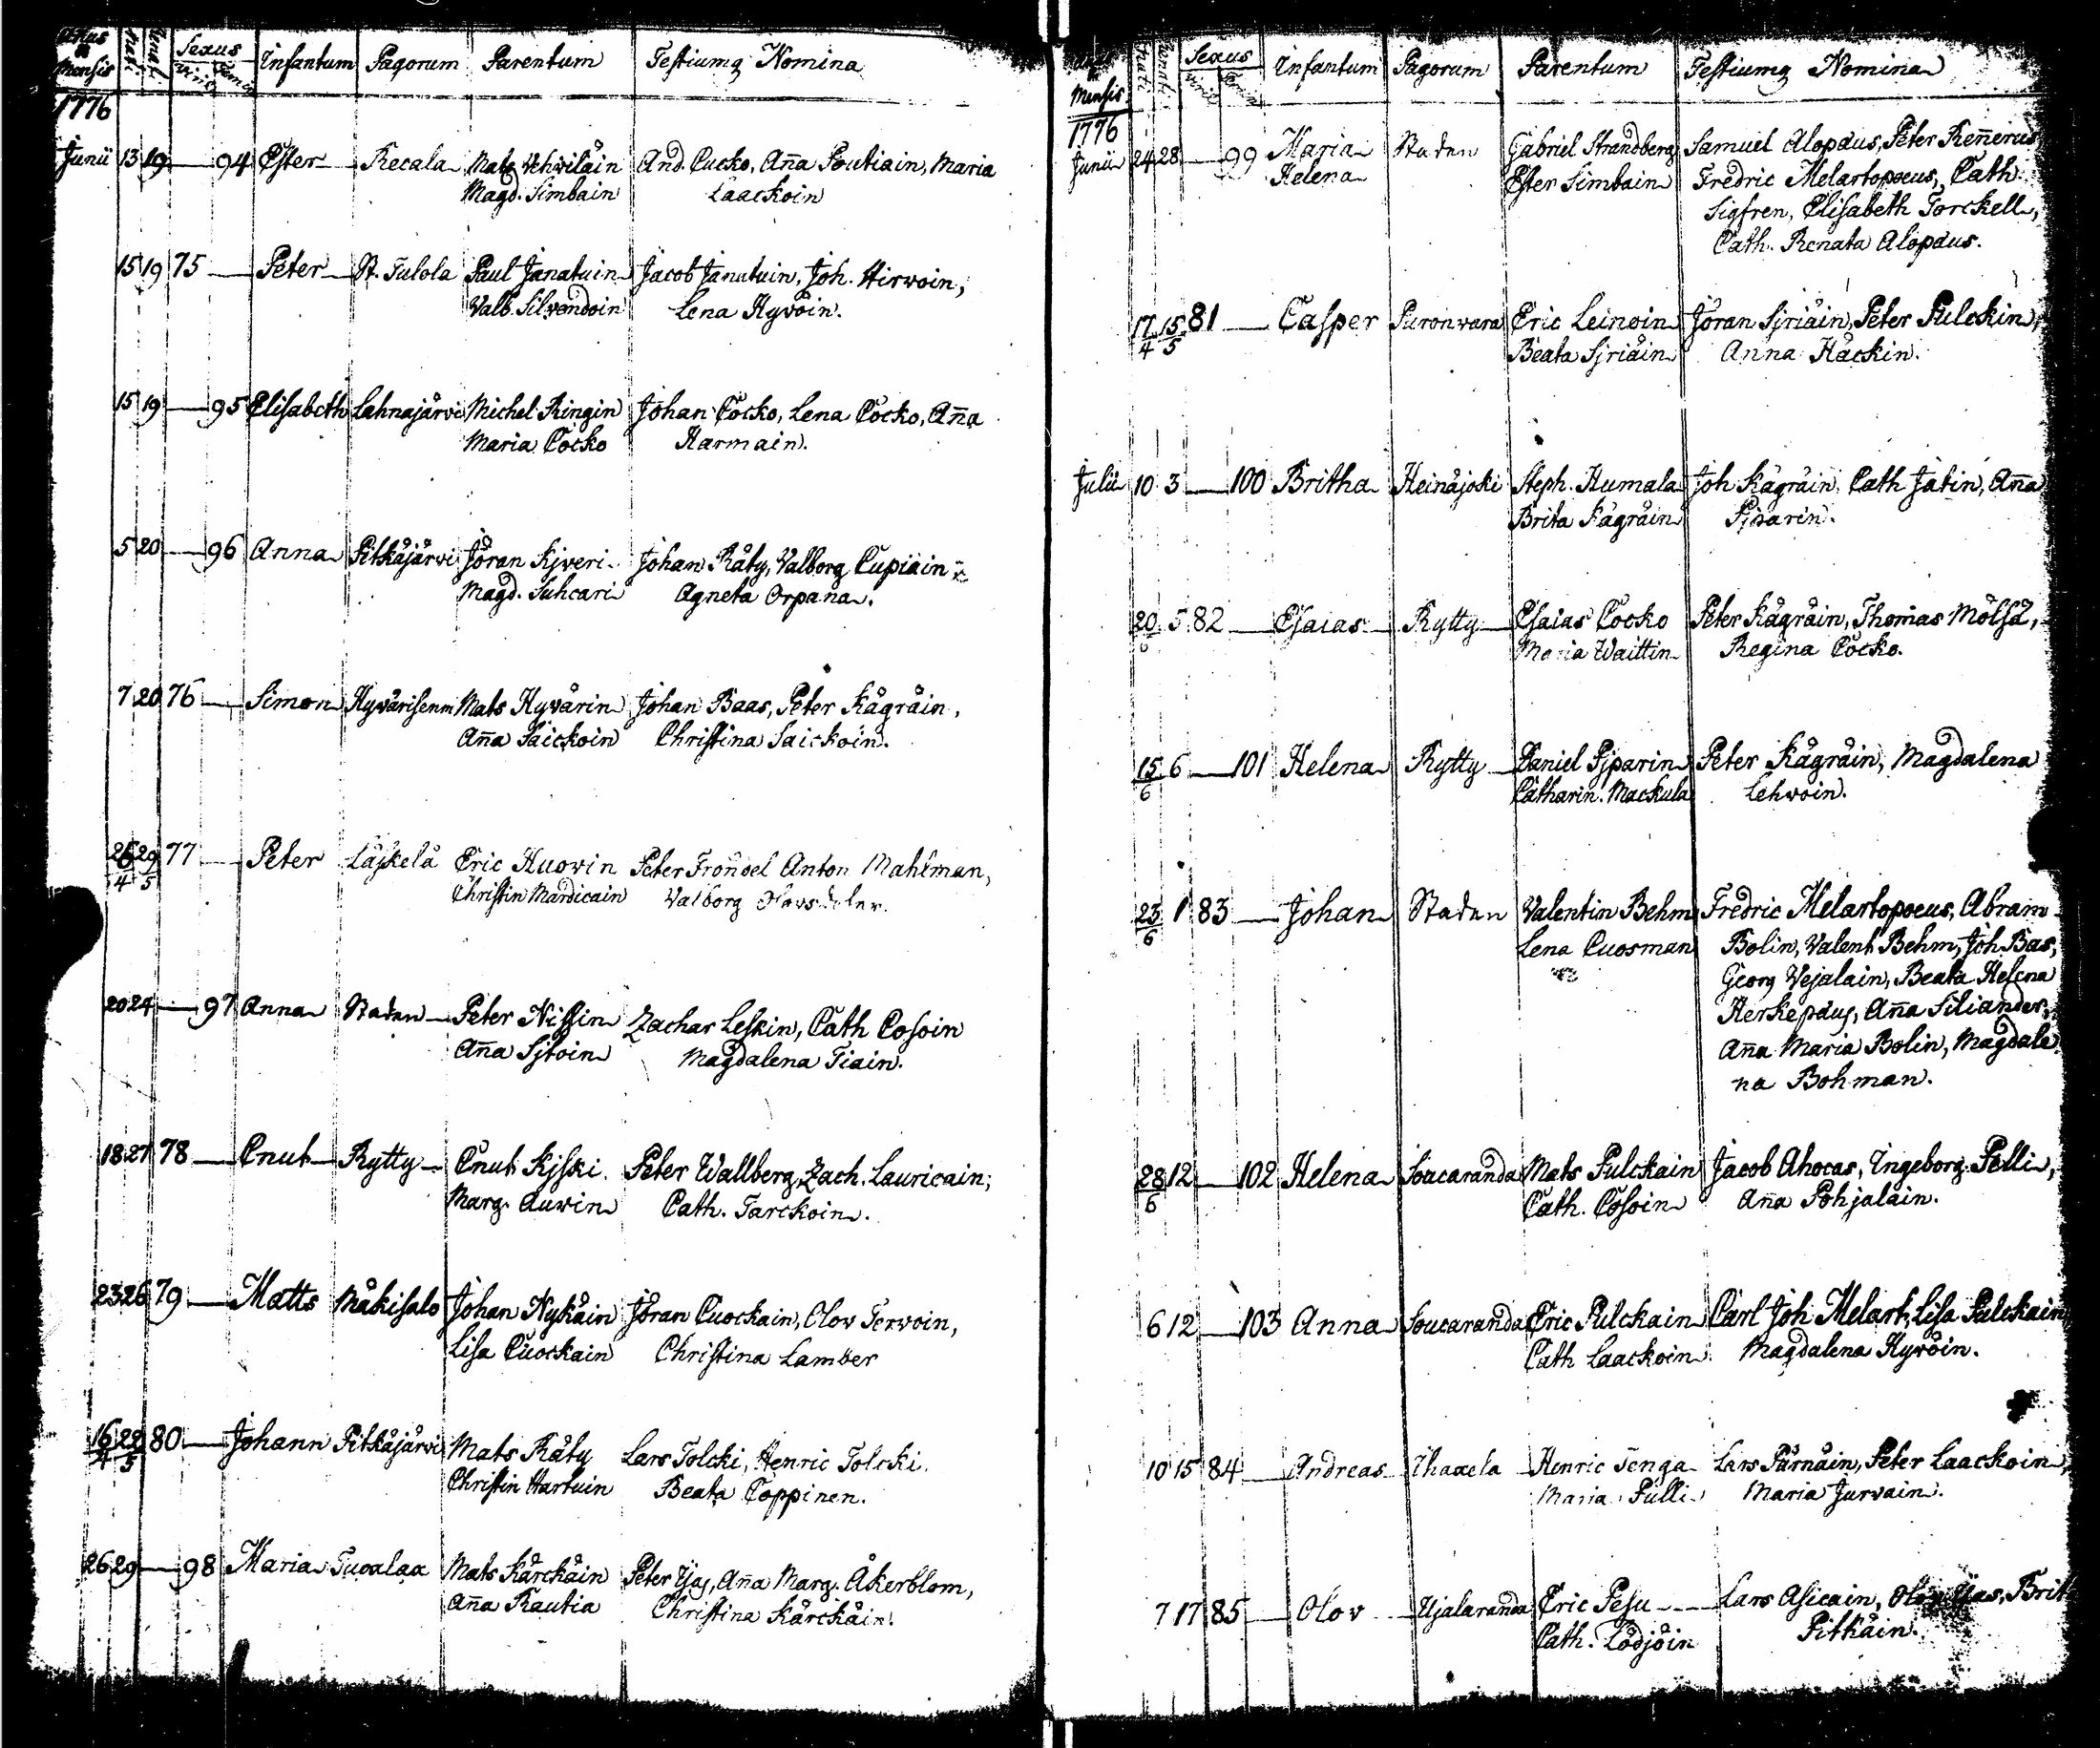 Annus & Mensis Nati Renati Sexus Viril Foemin Infantum Pagorum Parentum Testiumq Nomina
1776
Junii 13 19 — 94 Ester Recala Mats Vehviläin And. Cucko, Aña Poutiain, Maria
Magd. Simbain Laackoin
15 19 75 — Peter St. Tulola Paul Janatuin Jacob Janatuin, Joh. Hirvoin,
Valb. Silvendoin Lena Hyvöin.
15 19 — 95 Elisabeth Lahnajärvi Michel Ringin Johan Cocko, Lena Cocko, Aña
Maria Cocko Harmain.
5 20 — 96 Anna Pitkäjärvi Jöran Kjveri Johan Räty, Valborg Cupiain
Magd. Suhcari Agneta Orpana.
7 20 76 — Simon Hyvärisenm Mats Hyvärin Johan Baas, Peter Kägräin,
Aña Saickoin Christina Saickoin.
26/4 29/5 77 — Peter Läskelä Eric Huovin Peter Frondel Anton Mahlman,
Christin Mardicain Valborg
20 24 — 97 Anna Staden Peter Nissin Zachar Leskin, Cath Cosoin
Aña Sjtoin Magdalena Tiain.
18 27 78 — Cnut Rytty Cnut Kjski Peter Wallberg, Zach. Lauricain,
Marg. Auvin Cath. Tarckoin.
23 26 79 — Matts Mäkisalo Johan Nykäin Jöran Cuockain, Olov Tervoin,
Lisa Cuockain Christina Lamber
16/4 22/5 80 — Johann Pitkäjärvi Mats Räty Lars Tolcki, Henric Tolcki.
Christin Hartuin Beata Toppinen.
26 29 — 98 Maria Tuoalaa Mats Kärckäin Peter Yjas, Aña Marg. Åkerblom,
Aña Rautia Christina Kärckäin.
Annus & Mensis Nati Renati Sexus Viril Foemin Infantum Pagorum Parentum Testiumq Nomina
1776
Junii 24 28 — 99 Maria Staden Gabriel Strandberg Samuel Alopæus, Peter Reñerus
Helena Ester Simbain Fredric Melartopoeus, Cath
Sigfren, Elisabeth Torckell,
Cath. Renata Alopæus.
17/4 15/5 81 — Casper Puronvara Eric Leinoin Jöran Sjriäin, Peter Pulckin,
Beata Sjriäin Anna Häckin.
Julii 10 3 — 100 Britha Heinäjoki Steph. Humala Joh Kägräin, Cath Jätin, Aña
Brita Kägräin Pjparin.
20/6 5 82 — Esaias Rytty Esaias Cocko Peter Kägräin, Thomas Mölsä,
Maria Waittin Regina Cocko.
15/6 6 — 101 Helena Rytty Daniel Pjparin Peter Kägräin, Magdalena
Catharin. Mackula Lehvoin.
23/6 1 83 — Johan Staden Valentin Behm Fredric Melartopoeus, Abram
Lena Cuosman Bolin, Valent Behm, Joh. Bas,
Georg Vejalain, Beata Helena
Herkepæus, Aña Siliander,
Aña Maria Bolin, Magdale
na Bohman.
28/6 12 — 102 Helena Soucaranda Mats Pulckain Jacob Ahocas, Ingeborg Pelli,
Cath. Cosoin Aña Pohjalain.
6 12 — 103 Anna Soucaranda Eric Pulckain Carl Joh Melart, Lisa Pulckain
Cath Laackoin Magdalena Hyvöin.
10 15 84 — Andreas Ihaxela Henric Tenga Lars Pärnäin, Peter Laackoin,
Maria Pulli Maria Jurvain.
7 17 85 — Olov Ujalaranda Eric Pesu Lars Asicain, Olov Yjas, Brit
Cath. Lödjöin Pitkäin.